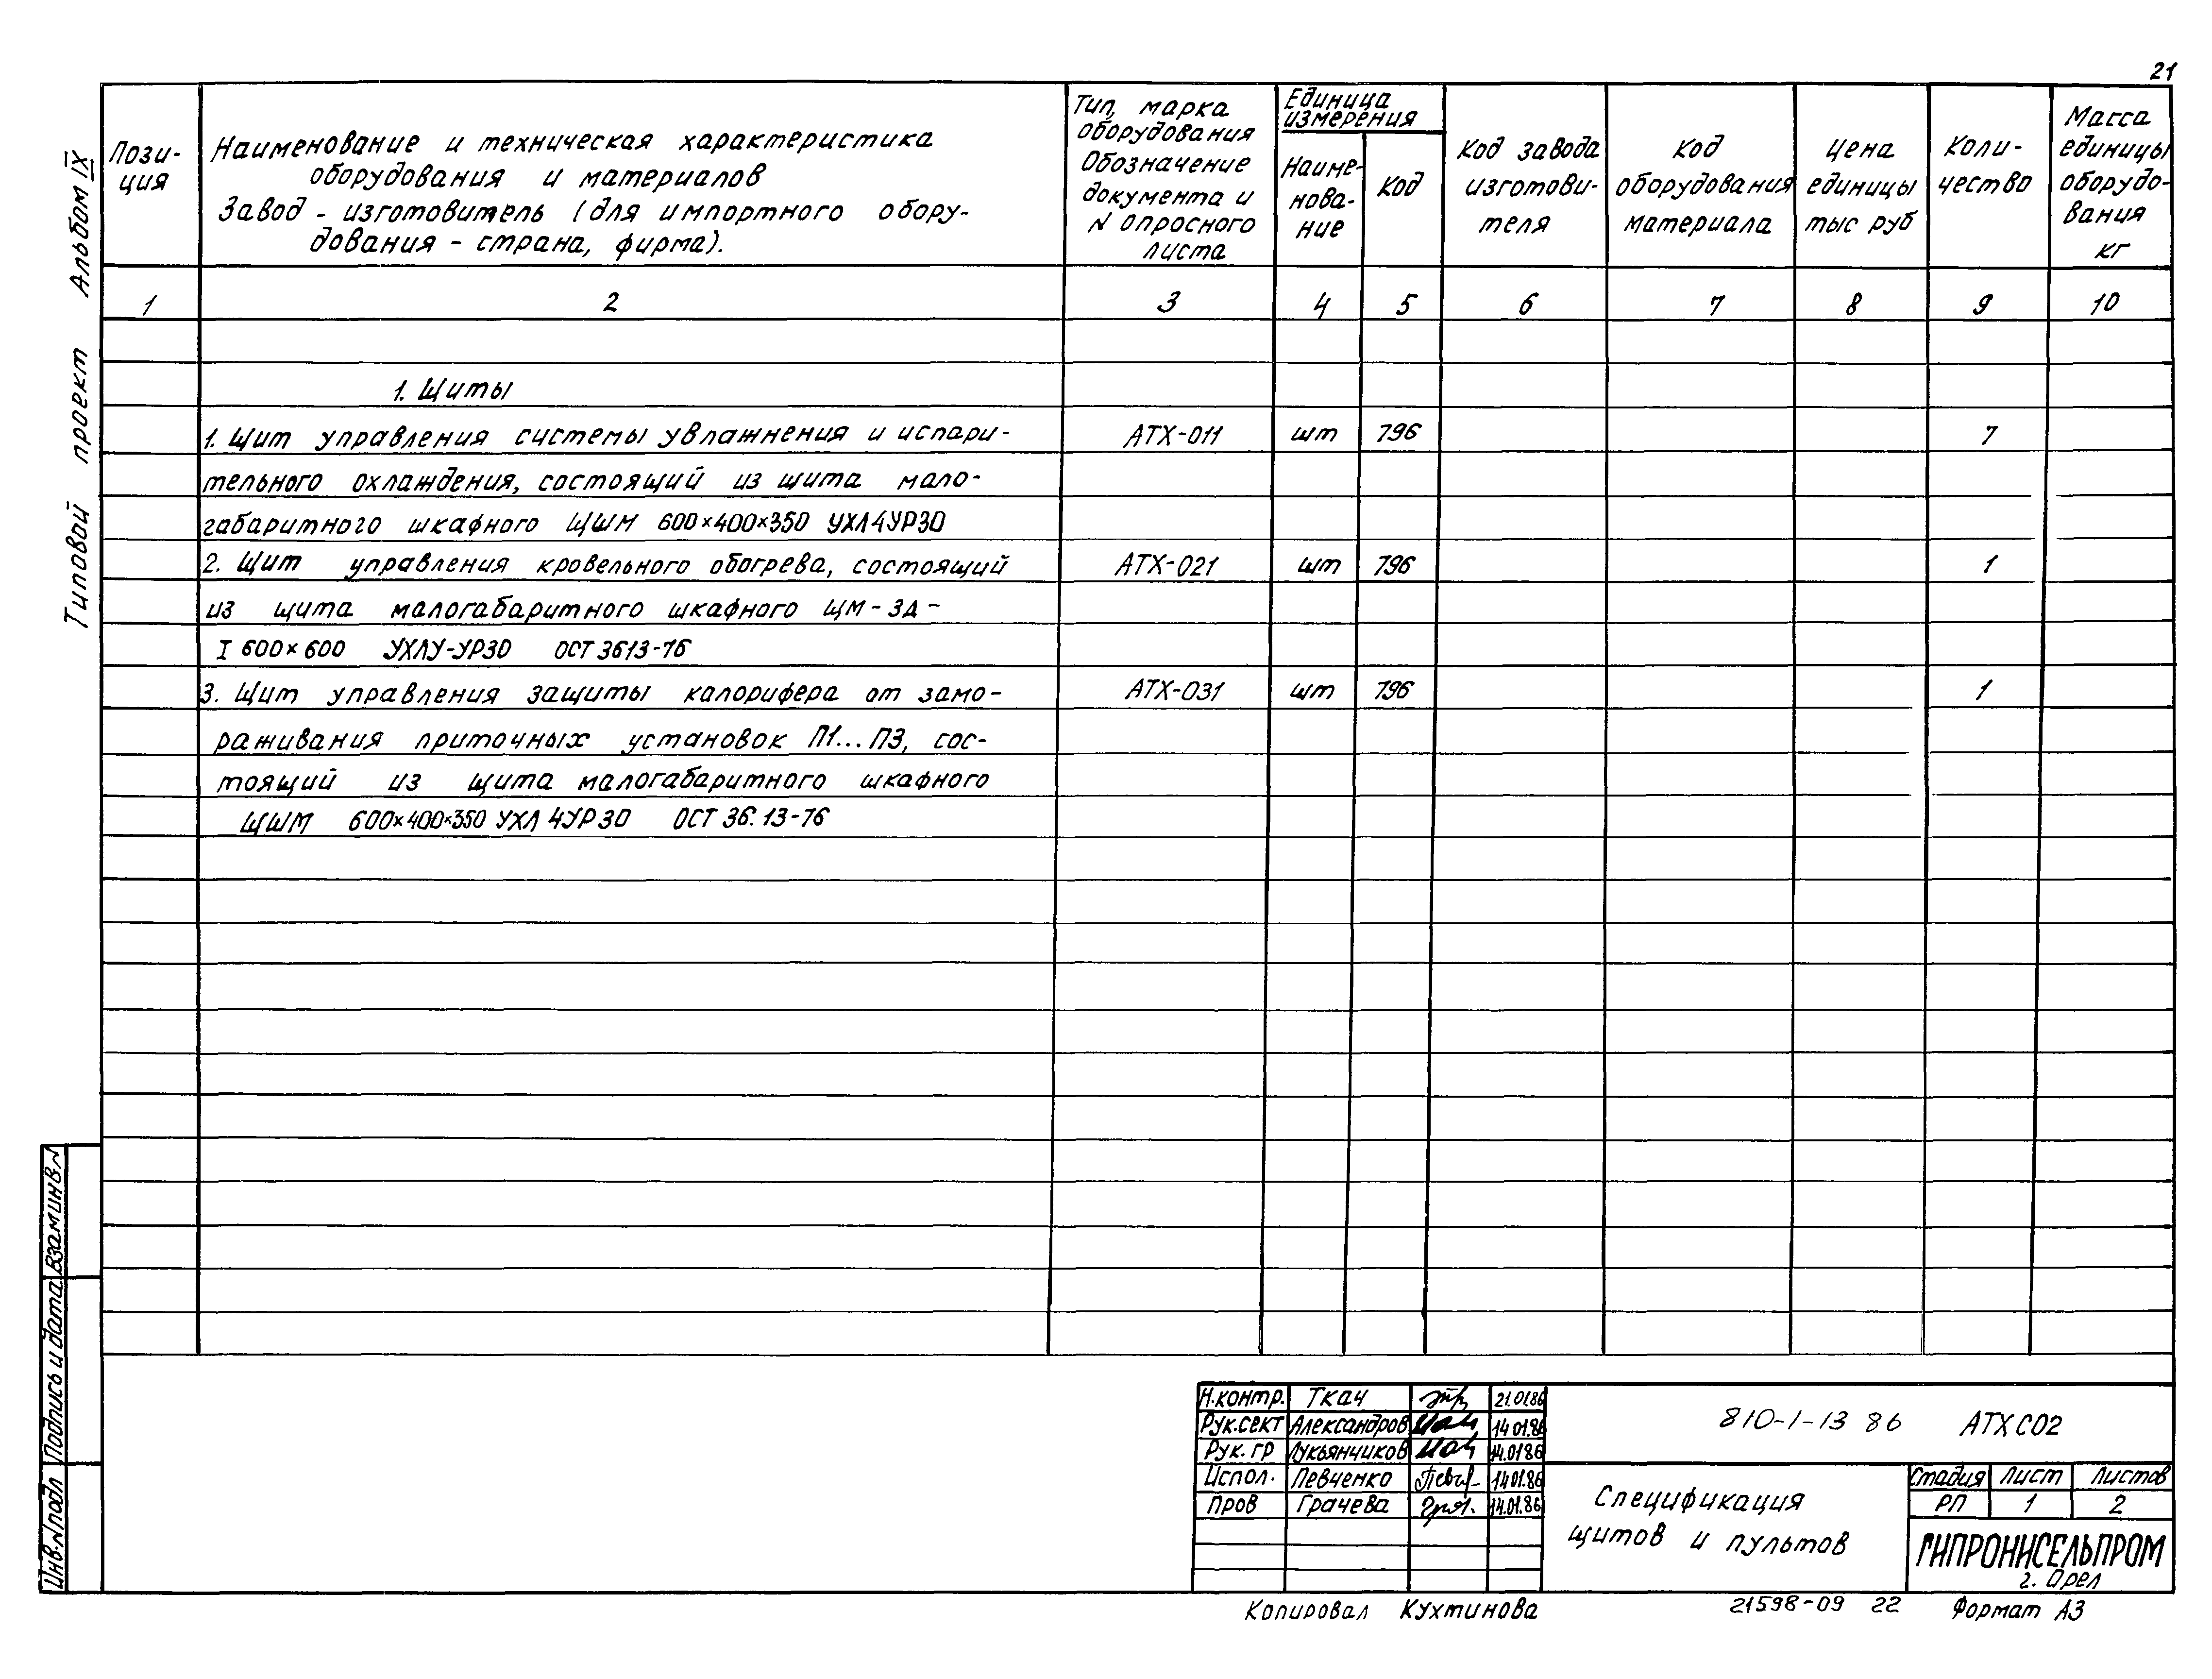 21
Типовой проект Альбом IX
Пози-
ция
Наименование и техническая характеристика
оборудования и материалов
Завод - изготовитель (для импортного обору-
дования - страна, фирма).
Тип, марка
оборудования
Обозначение
документа и
N опросного
листа
Единица
измерения
Наиме-
нова-
ние
Код
Код завода
изготови-
теля
Код
оборудования
материала
Цена
единицы
тыс руб
Коли-
чество
Масса
единицы
оборудо-
вания
кг
1 2 3 4 5 6 7 8 9 10
1. Щиты
1. Щит управления системы увлажнения и испари- АТХ-011 шт 796 7
тельного охлаждения, состоящий из щита мало-
габаритного шкафного ЩШМ 600×400×350 УХЛ4УР30
2. Щит управления кровельного обогрева, состоящий АТХ-021 шт 796 1
из щита малогабаритного шкафного ЩМ-ЗД-
I 600×600 УХЛУ-УР30 ОСТ 3613-76
3. Щит управления защиты калорифера от замо- АТХ-031 шт 796 1
раживания приточных установок П1...П3, сос-
тоящий из щита малогабаритного шкафного
ЩШМ 600×400×350 УХЛ 4УР30 ОСТ 36.13-76
Взам инв.N
Подпись и дата
Инв.N подл
Н.контр. Ткач 21.01.86
Рук.сект Александров 14 01.86
Рук.гр Лукьянчиков 14.01 86
Испол. Левченко 14 01.86
Пров Грачева 14.01.86
810-1-13 86 АТХ СО2
Спецификация
щитов и пультов
Стадия Лист Листов
РП 1 2
ГИПРОНИСЕЛЬПРОМ
г. Орел
Копировал Кухтинова 21598-09 22 Формат А3